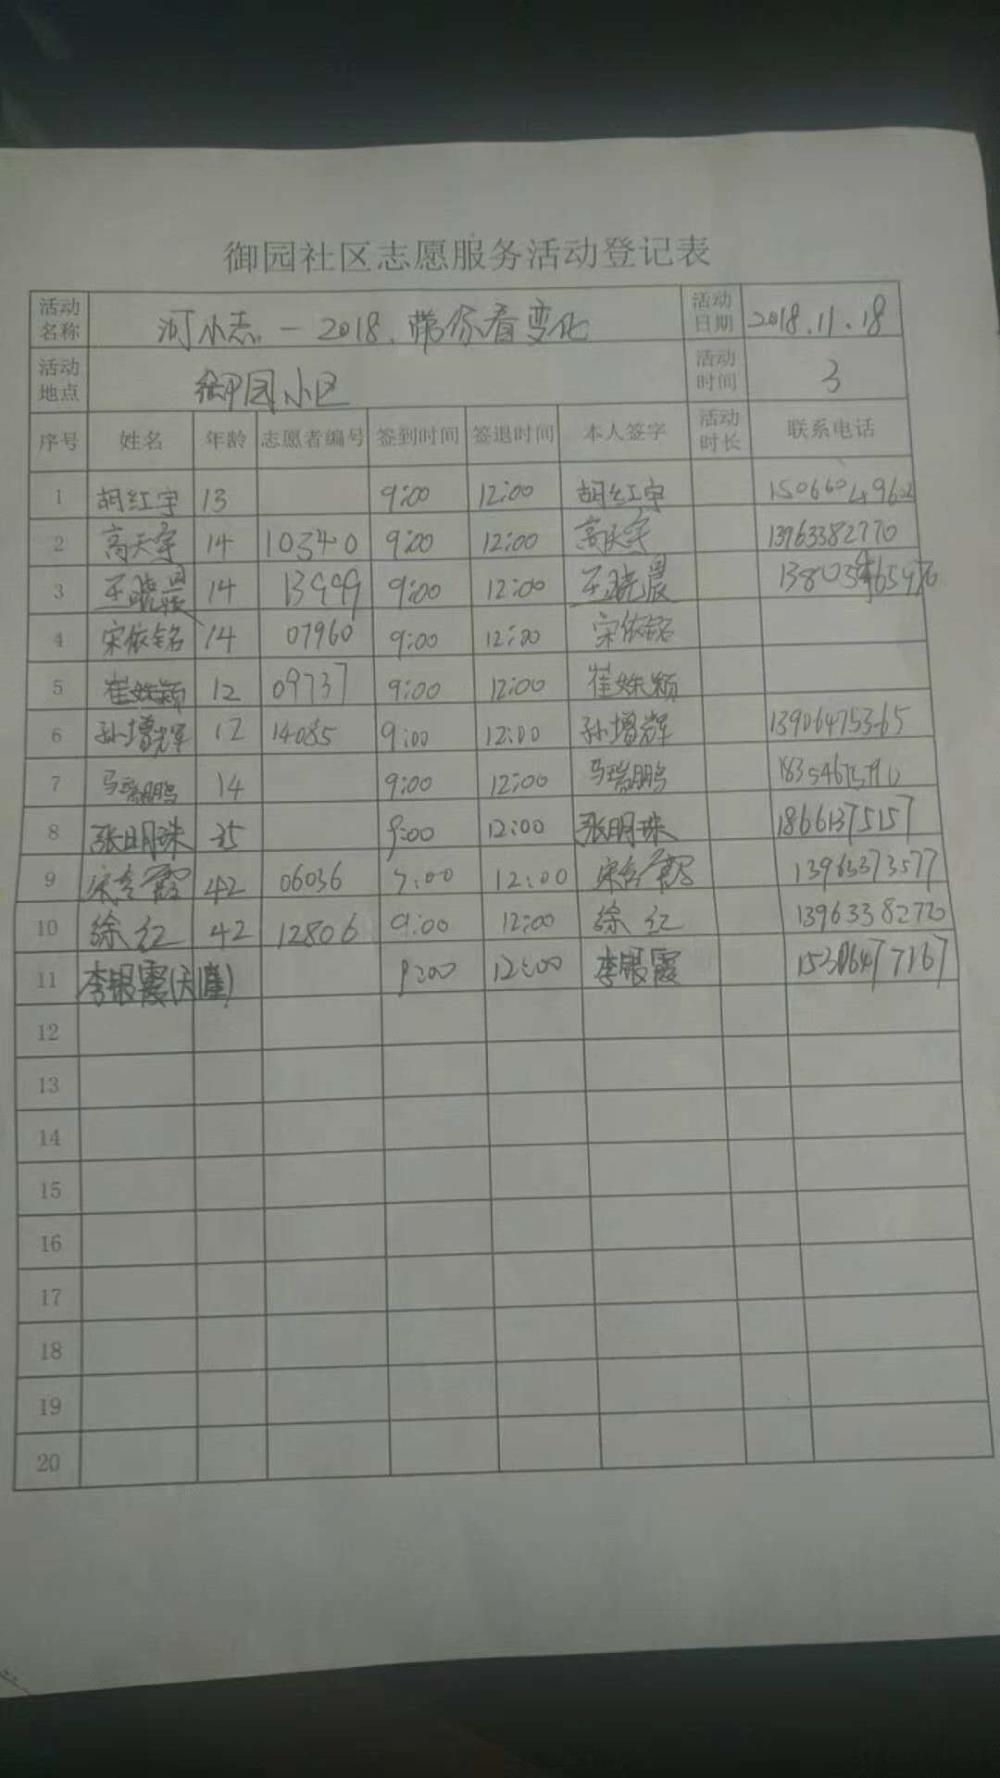 御园社区志愿服务活动登记表
活动名称 河小志—2018.带你看变化 活动日期 2018.11.18
活动地点 御甲园小区 活动时间 3
序号 姓名 年龄 志愿者编号 签到时间 签退时间 本人签字 活动时长 联系电话
1 胡红宇 13 9:00 12:00 胡红宇
2 高天宇 14 10340 9:00 12:00 高天宇 13963382770
3 王晓晨 14 13999 9:00 12:00 王晓晨
4 宋依铭 14 07960 9:00 12:00 宋依铭
5 崔姝颖 12 09737 9:00 12:00 崔姝颖
6 孙增辉 12 14085 9:00 12:00 孙增辉 13906475365
7 马瑞鹏 14 9:00 12:00 马瑞鹏
8 张明珠 35 9:00 12:00 张明珠 18661375157
9 42 06036 9:00 12:00 13963373577
10 徐红 42 12806 9:00 12:00 徐红 13963382770
11 李银霞 9:00 12:00 李银霞 15306477167
12
13
14
15
16
17
18
19
20